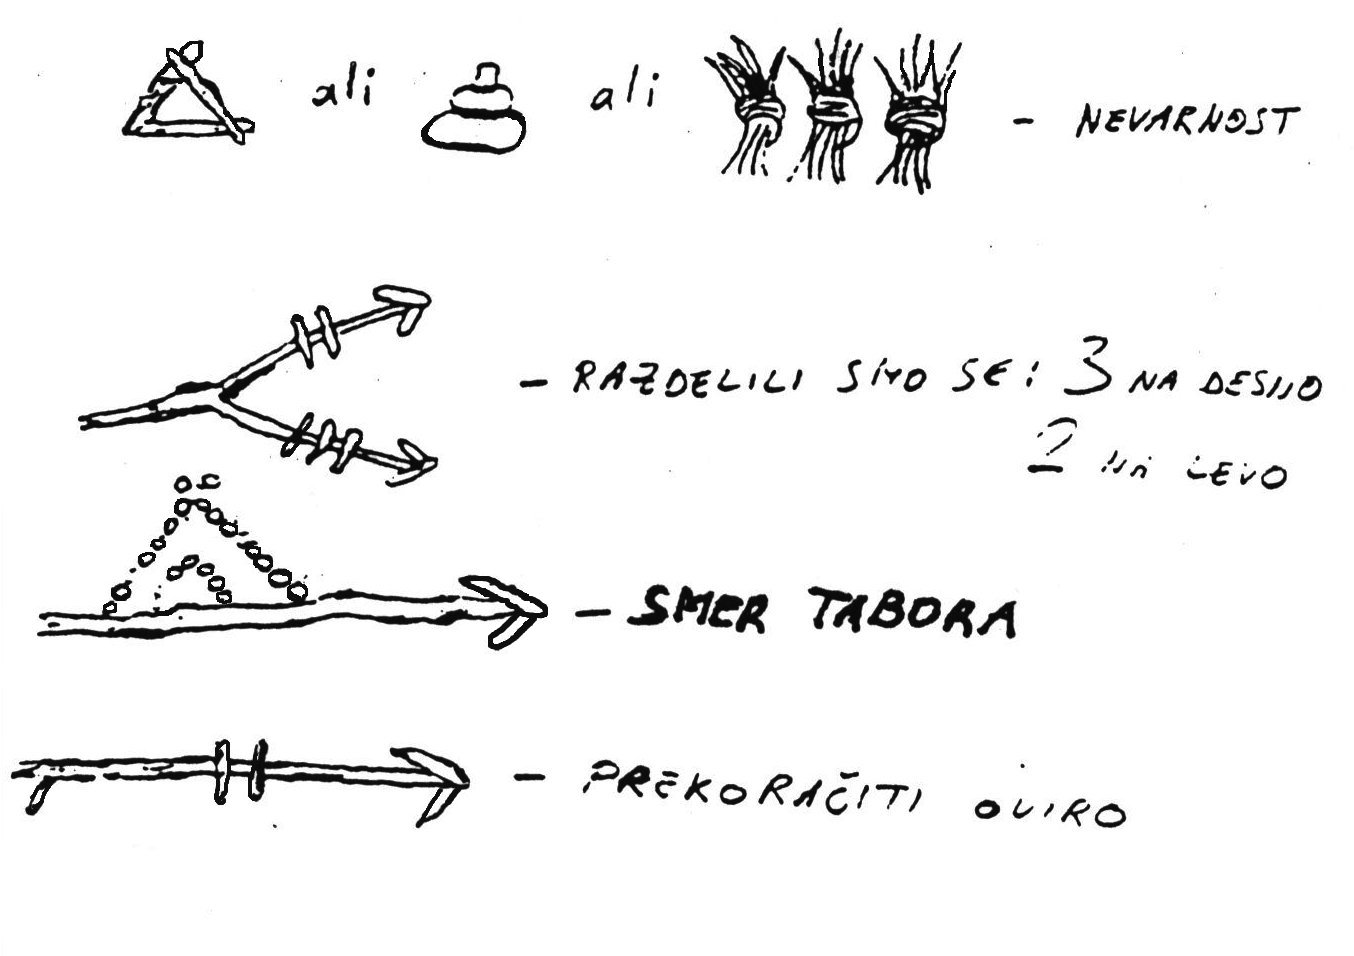 ali ali - NEVARNOST
- RAZDELILI SMO SE: 3 NA DESNO
2 NA LEVO
- SMER TABORA
- PREKORAČITI OVIRO